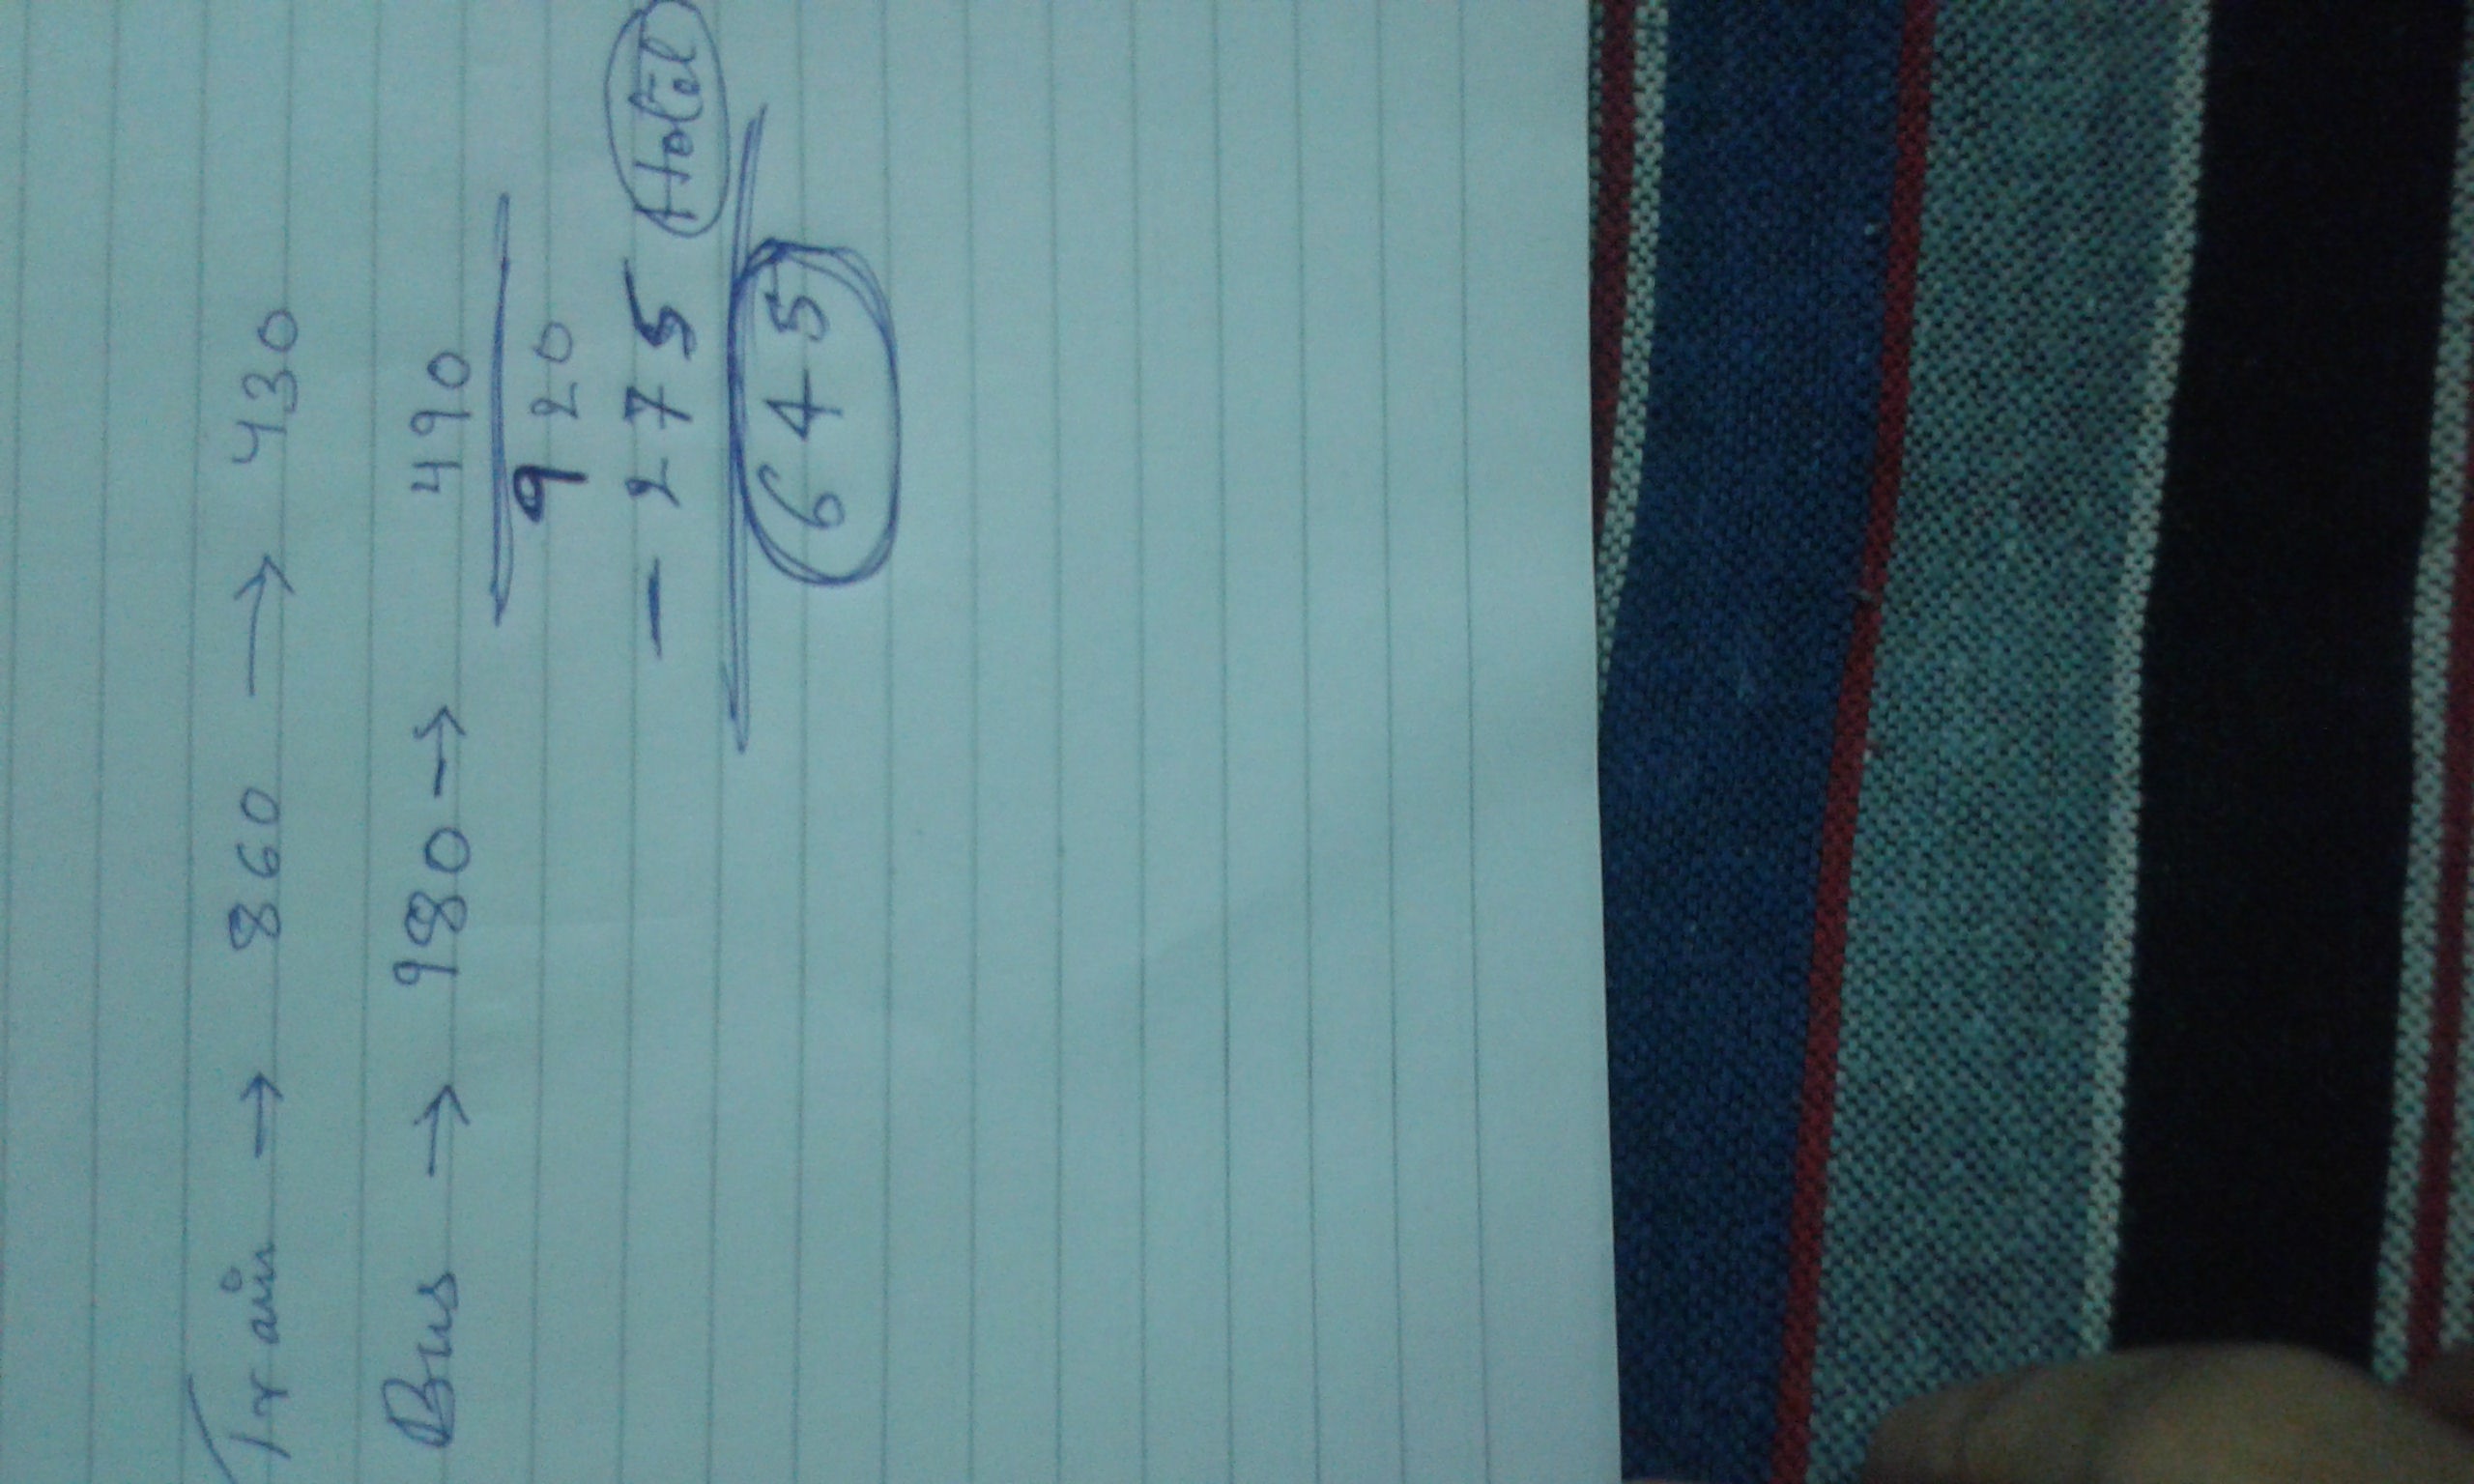 Train → 860 → 430
Bus → 980 → 490
920
- 275 Hotel
645